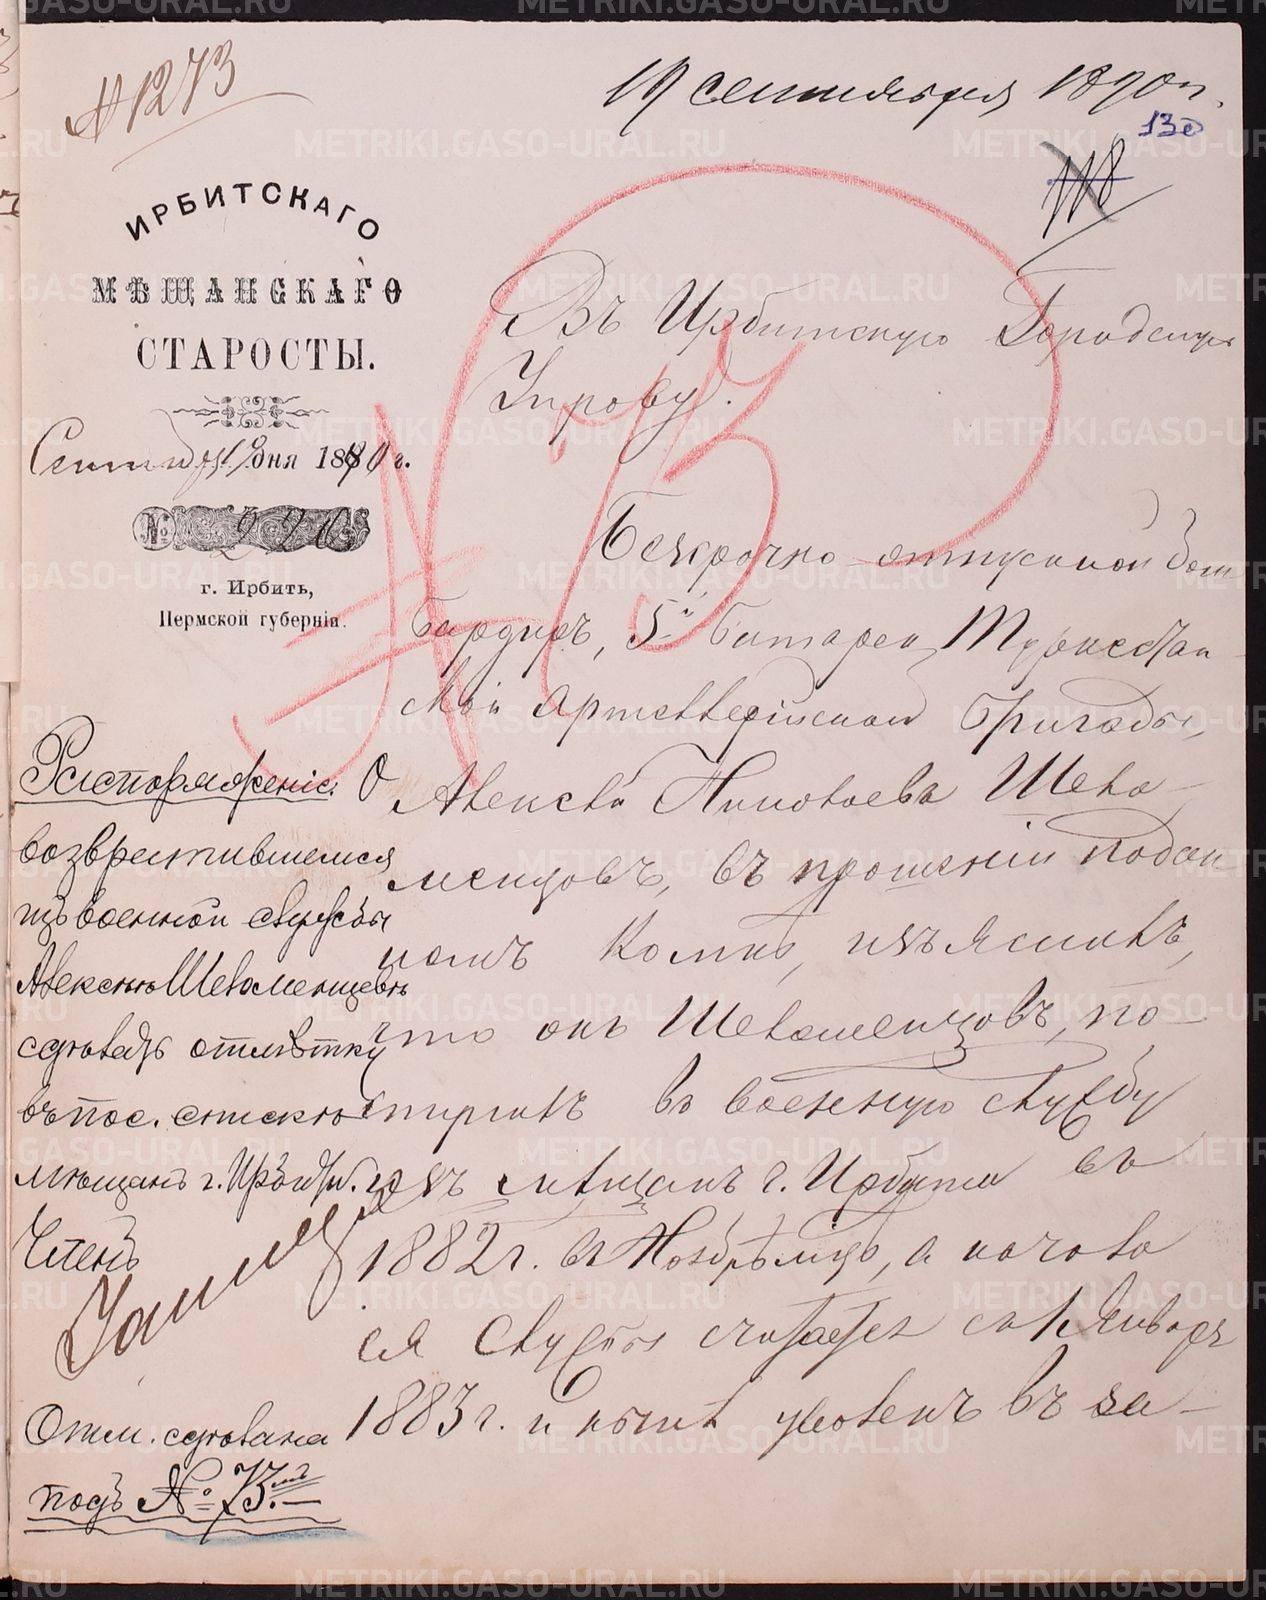 № 1273
19 сентября 1890 г.
130
118
ИРБИТСКАГО
МѢЩАНСКАГО
СТАРОСТЫ.
Сентября 19 дня 1890 г.
№ 220
г. Ирбить,
Пермской губерніи.
Въ Ирбитскую Городскую
Управу.
№ 73
Безсрочно отпускной бом
бардиръ, 5й батареи Туркестан
ской Артиллерійской бригады,
Алексѣй Николаевъ Шела
менцовъ, въ прошеніи подан
номъ ко мнѣ, изъяснилъ,
что онъ Шеломенцовъ, по-
ступилъ въ военную службу
изъ мѣщанъ г. Ирбита въ
1882 г. въ Ноябрѣ м-цѣ, а начало
ея службы считается съ 1 Января
1883 г. и нынѣ уволенъ въ за-
Распоряженіе: О
возвратившемся
изъ военной службы
Алексѣѣ Шеломенцевѣ
сдѣлать отмѣтку
въ пос. спискѣ
мѣщанъ г. Ирбити.
Членъ
Отм. сдѣлана
подъ № 73.мъ